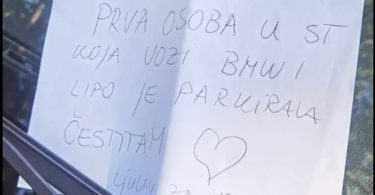 PRVA OSOBA U ST
KOJA VOZI BMW I
LIPO JE PARKIRALA
ČESTITAM
LJUBAV ZA